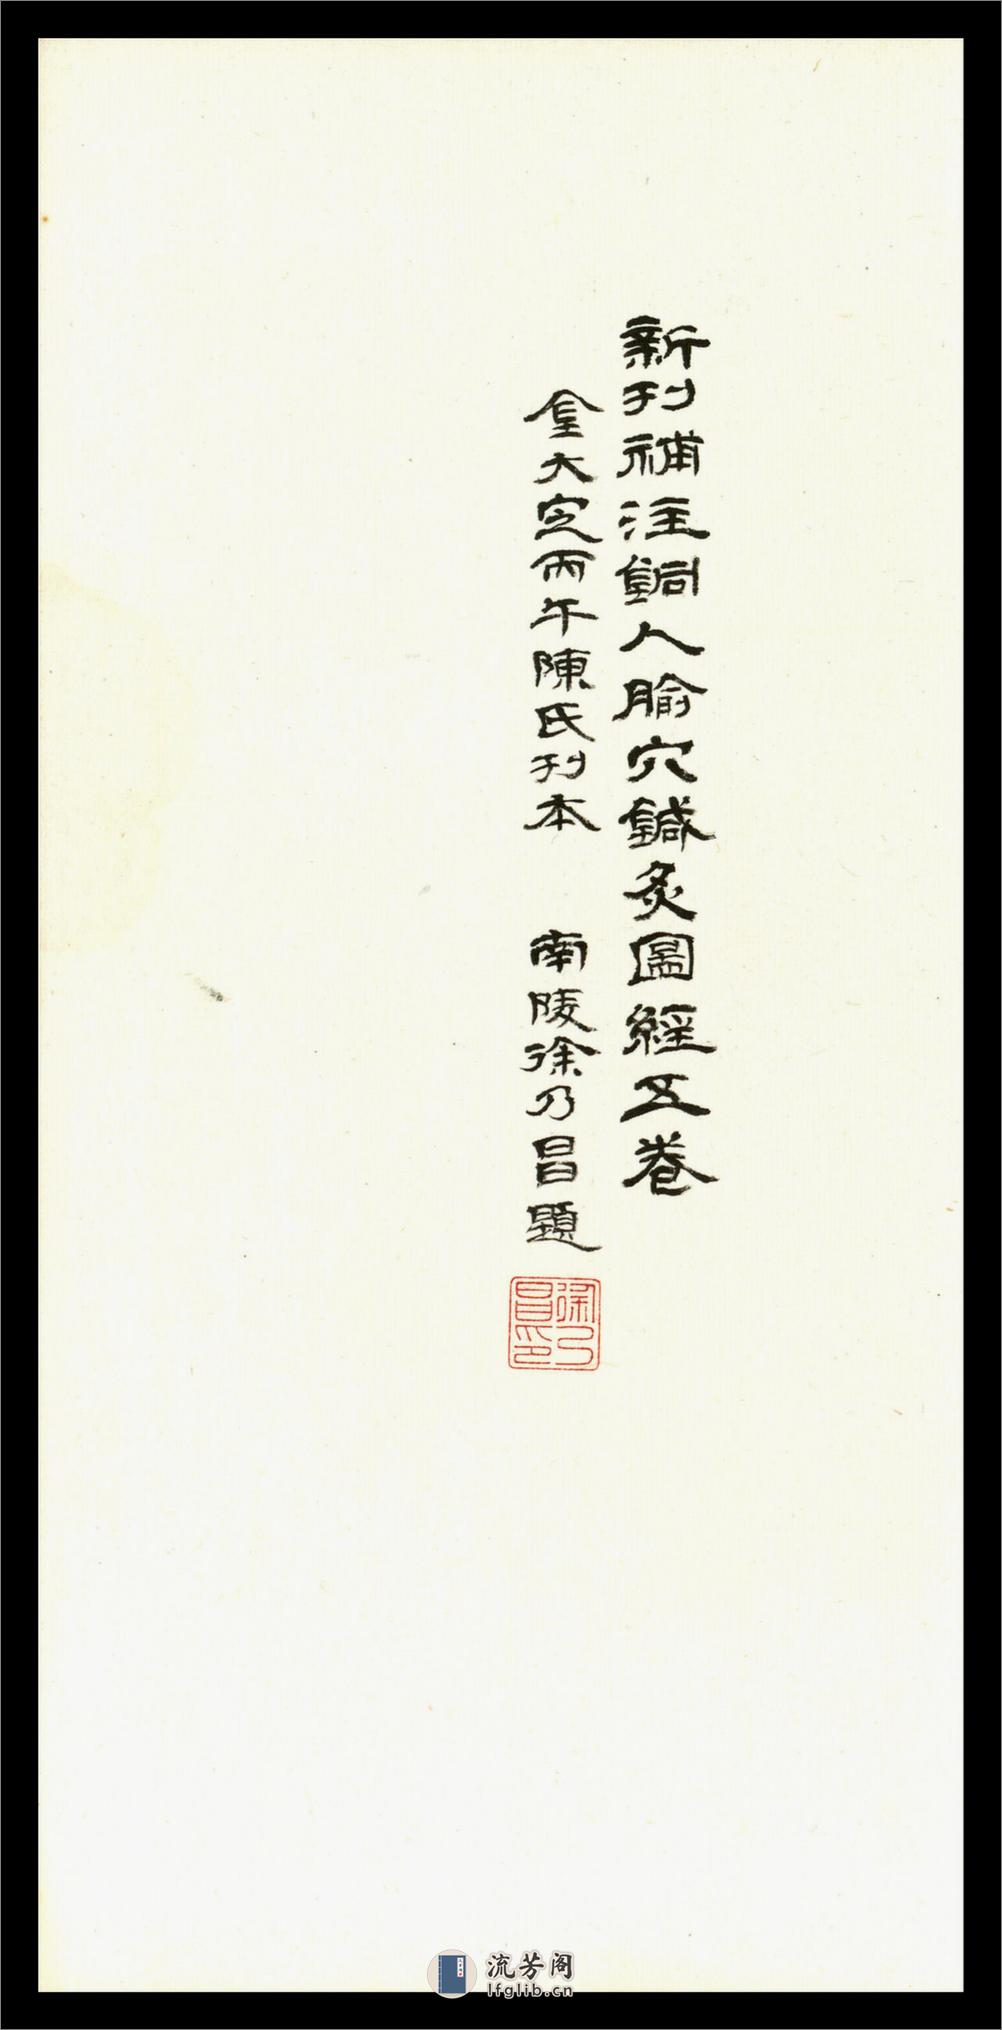 新刊補注銅人腧穴鍼灸圖經五卷
金大定丙午陳氏刊本 南陵徐乃昌題
徐乃昌印
流芳阁
lfglib.cn